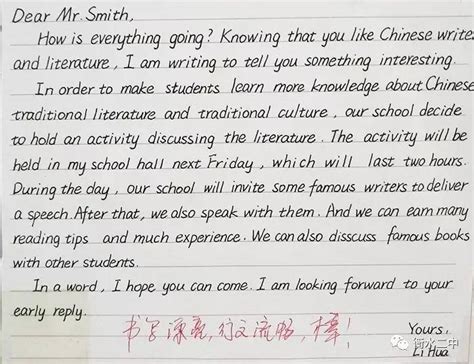 Dear Mr. Smith,
How is everything going? Knowing that you like Chinese write
and literature, I am writing to tell you something interesting.
In order to make students learn more knowledge about Chinese
traditional literature and traditional culture, our school decide
to hold an activity discussing the literature. The activity will be
held in my school hall next Friday, which will last two hours.
During the day, our school will invite some famous writers to deliver
a speech. After that, we also speak with them. And we can earn many
reading tips and much experience. We can also disscuss famous books
with other students.
In a word, I hope you can come. I am looking forward to your
early reply.
书写漂亮,行文流畅,棒!
Yours,
Li Hua
衡水二中